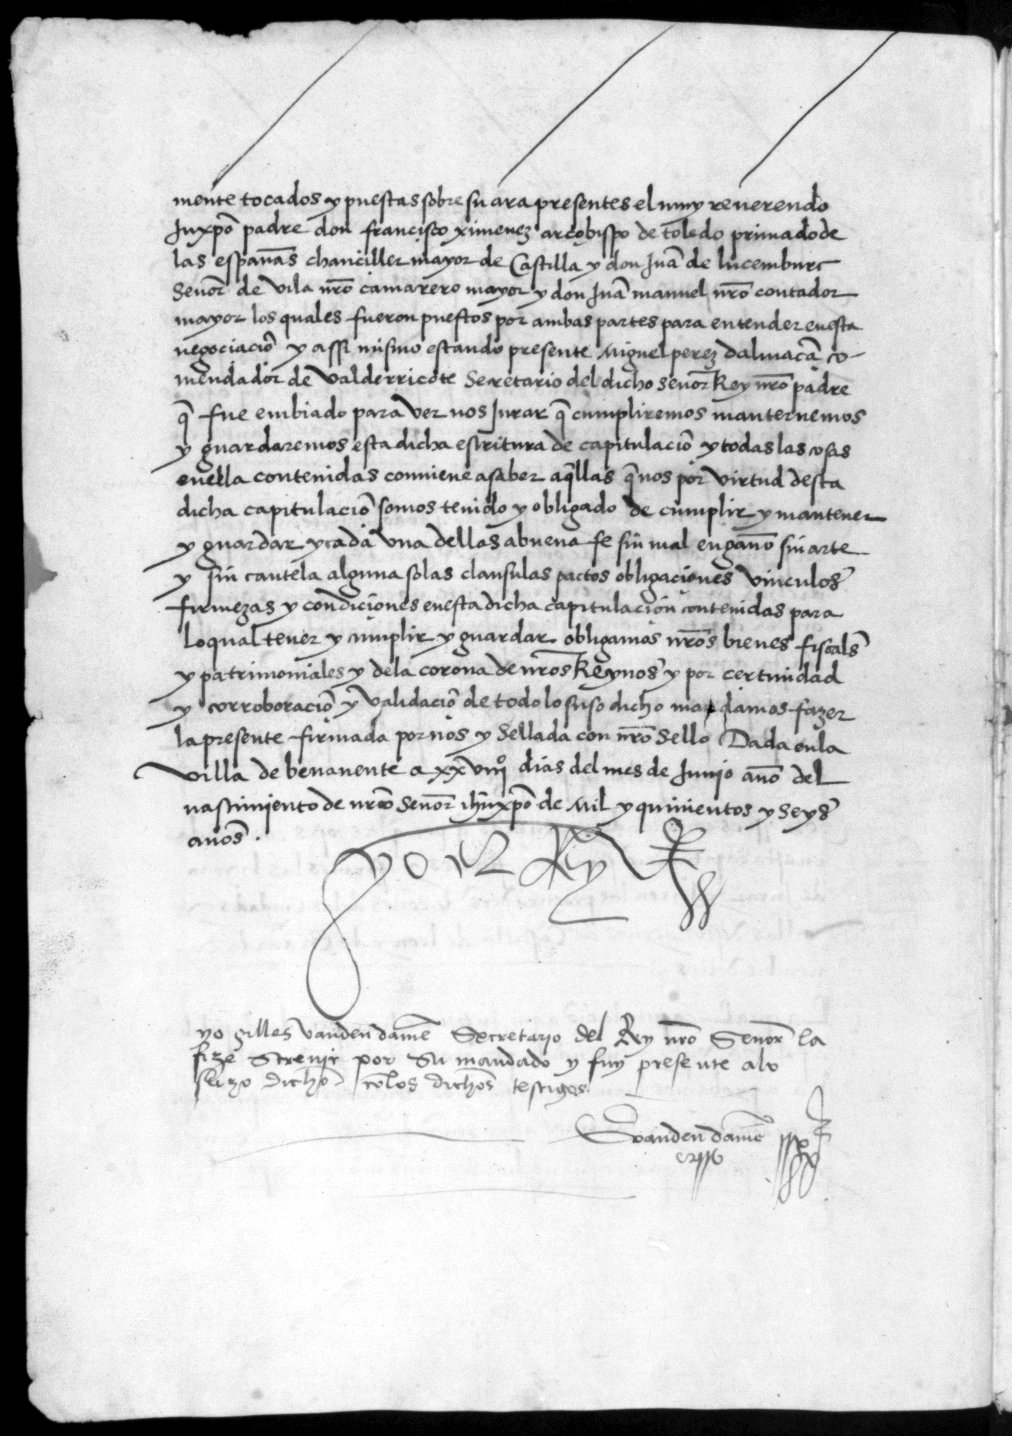 mente tocados y puestas sobre su ara presentes el muy reverendo
Inxpõ padre don francisco ximenez arcobispo de toledo primado de
las españas chanciller mayor de Castilla y don Juã de lucemburc
Señor de vila nr̃o camarero mayor y don Juã manuel nr̃o contador
mayor los quales fueron puestos por ambas partes para entender enesta
negociaciõ y assi mismo estando presente Miguel perez dalmacã co-
mendador de valderricote Secretario del dicho señor Rey nr̃o padre
q̃ fue embiado para ver nos Jurar q̃ cumpliremos manternemos
y guardaremos esta dicha escritura de capitulaciõ y todas las cosas
enella contenidas conviene asaber aq̃llas q̃ nos por virtud desta
dicha capitulaciõ somos tenido y obligado de cumplir y mantener
y guardar ycada una dellas abuena fe sin mal engaño sin arte
y sin cautela alguna so las clausulas pactos obligaciones vinculos
firmezas y condiciones enesta dicha capitulacion contenidas para
loqual tener y cumplir y guardar obligamos nr̃os bienes fiscales
y patrimoniales y dela corona de nr̃os Reynos y por certinidad
y corroboraciõ y validaciõ de todo lo suso dicho mandamos fazer
la presente firmada por nos y sellada con nr̃o sello Dada enla
villa de benavente a xxviii̊ dias del mes de Junio año del
nascimiento de nr̃o Señor ihũxpõ de Mil y quinientos y seys
años.
yo el Rey
yo gilles vanden damẽ Secretario del Rey nr̃o Señor la
fize screvir por su mandado y fuy presente alo
suso dicho cõ los dichos testigos
G vanden damẽ